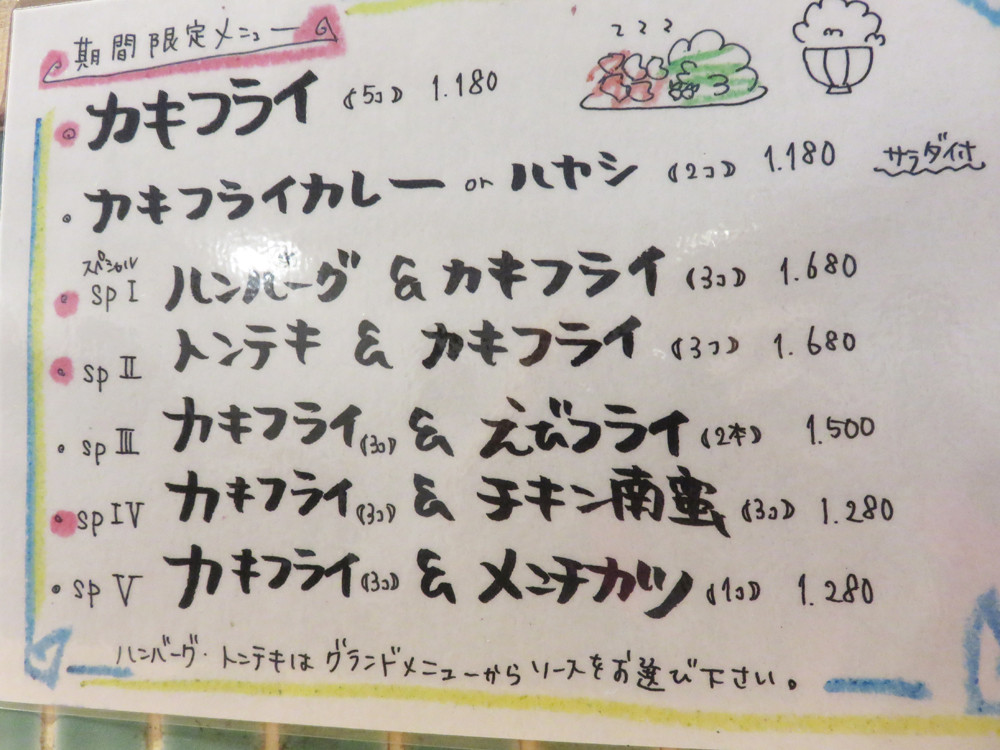 期間限定メニュー
カキフライ (5コ) 1.180
カキフライカレー or ハヤシ (2コ) 1.180 サラダ付
スペシャル
SP I ハンバーグ & カキフライ (3コ) 1.680
SP II トンテキ & カキフライ (3コ) 1.680
SP III カキフライ (3コ) & えびフライ (2本) 1.500
SP IV カキフライ (3コ) & チキン南蛮 (3コ) 1.280
SP V カキフライ (3コ) & メンチカツ (1コ) 1.280
ハンバーグ・トンテキは グランドメニューから ソースをお選び下さい。